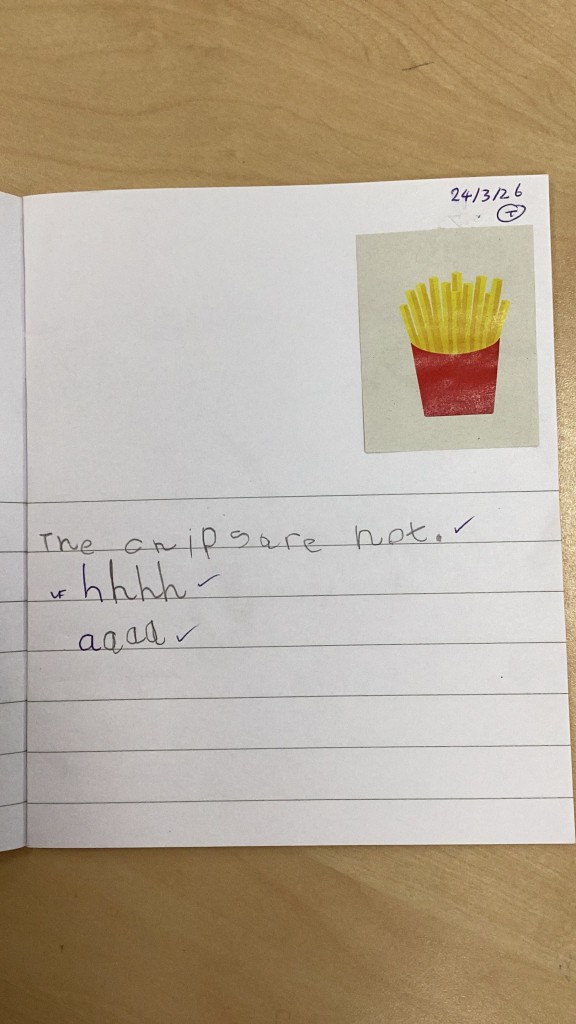 24/3/26
T
The chips are hot. ✓
VF hhhh ✓
aaaa ✓